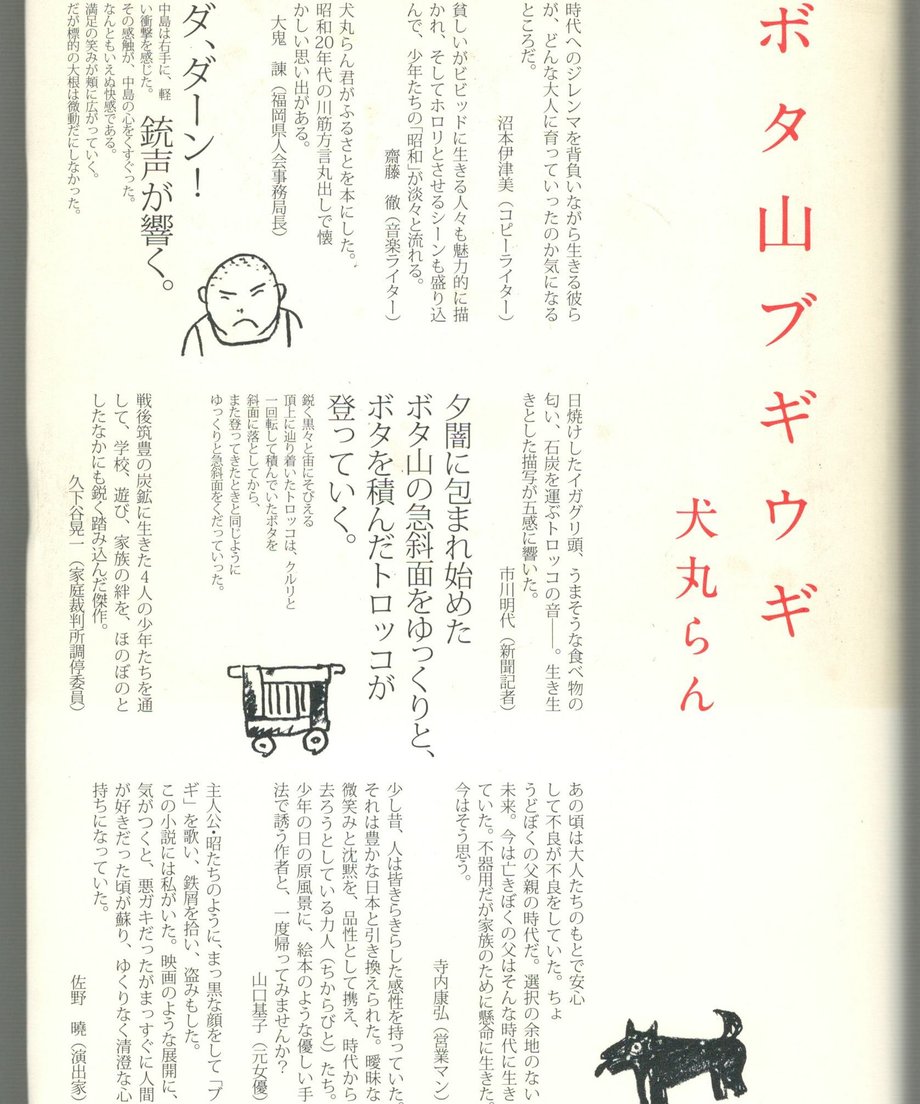 ボタ山ブギウギ
犬丸らん
時代へのジレンマを背負いながら生きる彼ら
が、どんな大人に育っていったのか気になる
ところだ。
沼本伊津美（コピーライター）
貧しいがビビッドに生きる人々も魅力的に描
かれ、そしてホロリとさせるシーンも盛り込
んで、少年たちの「昭和」が淡々と流れる。
齋藤　徹（音楽ライター）
犬丸らん君がふるさとを本にした。
昭和20年代の川筋方言丸出しで懐
かしい思い出がある。
大鬼　諫（福岡県人会事務局長）
ダ、ダーン！
銃声が響く。
中島は右手に、軽
い衝撃を感じた。
その感触が、中島の心をくすぐった。
なんともいえぬ快感である。
満足の笑みが頬に広がっていく。
だが標的の大根は微動だにしなかった。
日焼けしたイガグリ頭、うまそうな食べ物の
匂い、石炭を運ぶトロッコの音――。生き生
きとした描写が五感に響いた。
市川明代（新聞記者）
夕闇に包まれ始めた
ボタ山の急斜面をゆっくりと、
ボタを積んだトロッコが
登っていく。
鋭く黒々と宙にそびえる
頂上に辿り着いたトロッコは、クルリと
一回転して積んでいたボタを
斜面に落としてから、
また登ってきたときと同じように
ゆっくりと急斜面をくだっていった。
戦後筑豊の炭鉱に生きた4人の少年たちを通
して、学校、遊び、家族の絆を、ほのぼのと
したなかにも鋭く踏み込んだ傑作。
久下谷晃一（家庭裁判所調停委員）
あの頃は大人たちのもとで安心
して不良が不良をしていた。ちょ
うどぼくの父親の時代だ。選択の余地のない
未来。今は亡きぼくの父はそんな時代に生き
ていた。不器用だが家族のために懸命に生きた。
今はそう思う。
寺内康弘（営業マン）
少し昔、人は皆きらきらした感性を持っていた。
それは豊かな日本と引き換えられた。曖昧な
微笑みと沈黙を、品性として携え、時代から
去ろうとしている力人（ちからびと）たち。
少年の日の原風景に、絵本のような優しい手
法で誘う作者と、一度帰ってみませんか？
山口基子（元女優）
主人公・昭たちのように、まっ黒な顔をして「ブ
ギ」を歌い、鉄屑を拾い、盗みもした。
この小説には私がいた。映画のような展開に、
気がつくと、悪ガキだったがまっすぐに人間
が好きだった頃が蘇り、ゆくりなく清澄な心
持ちになっていた。
佐野　曉（演出家）